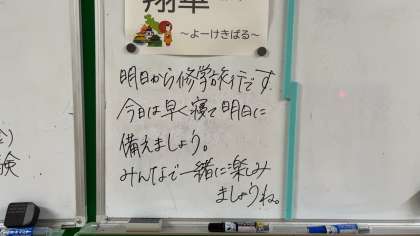 翔華
～よーけきばる～
明日から修学旅行です
今日は早く寝て明日に
備えましょう。
みんなで一緒に楽しみ
ましょうね。
験